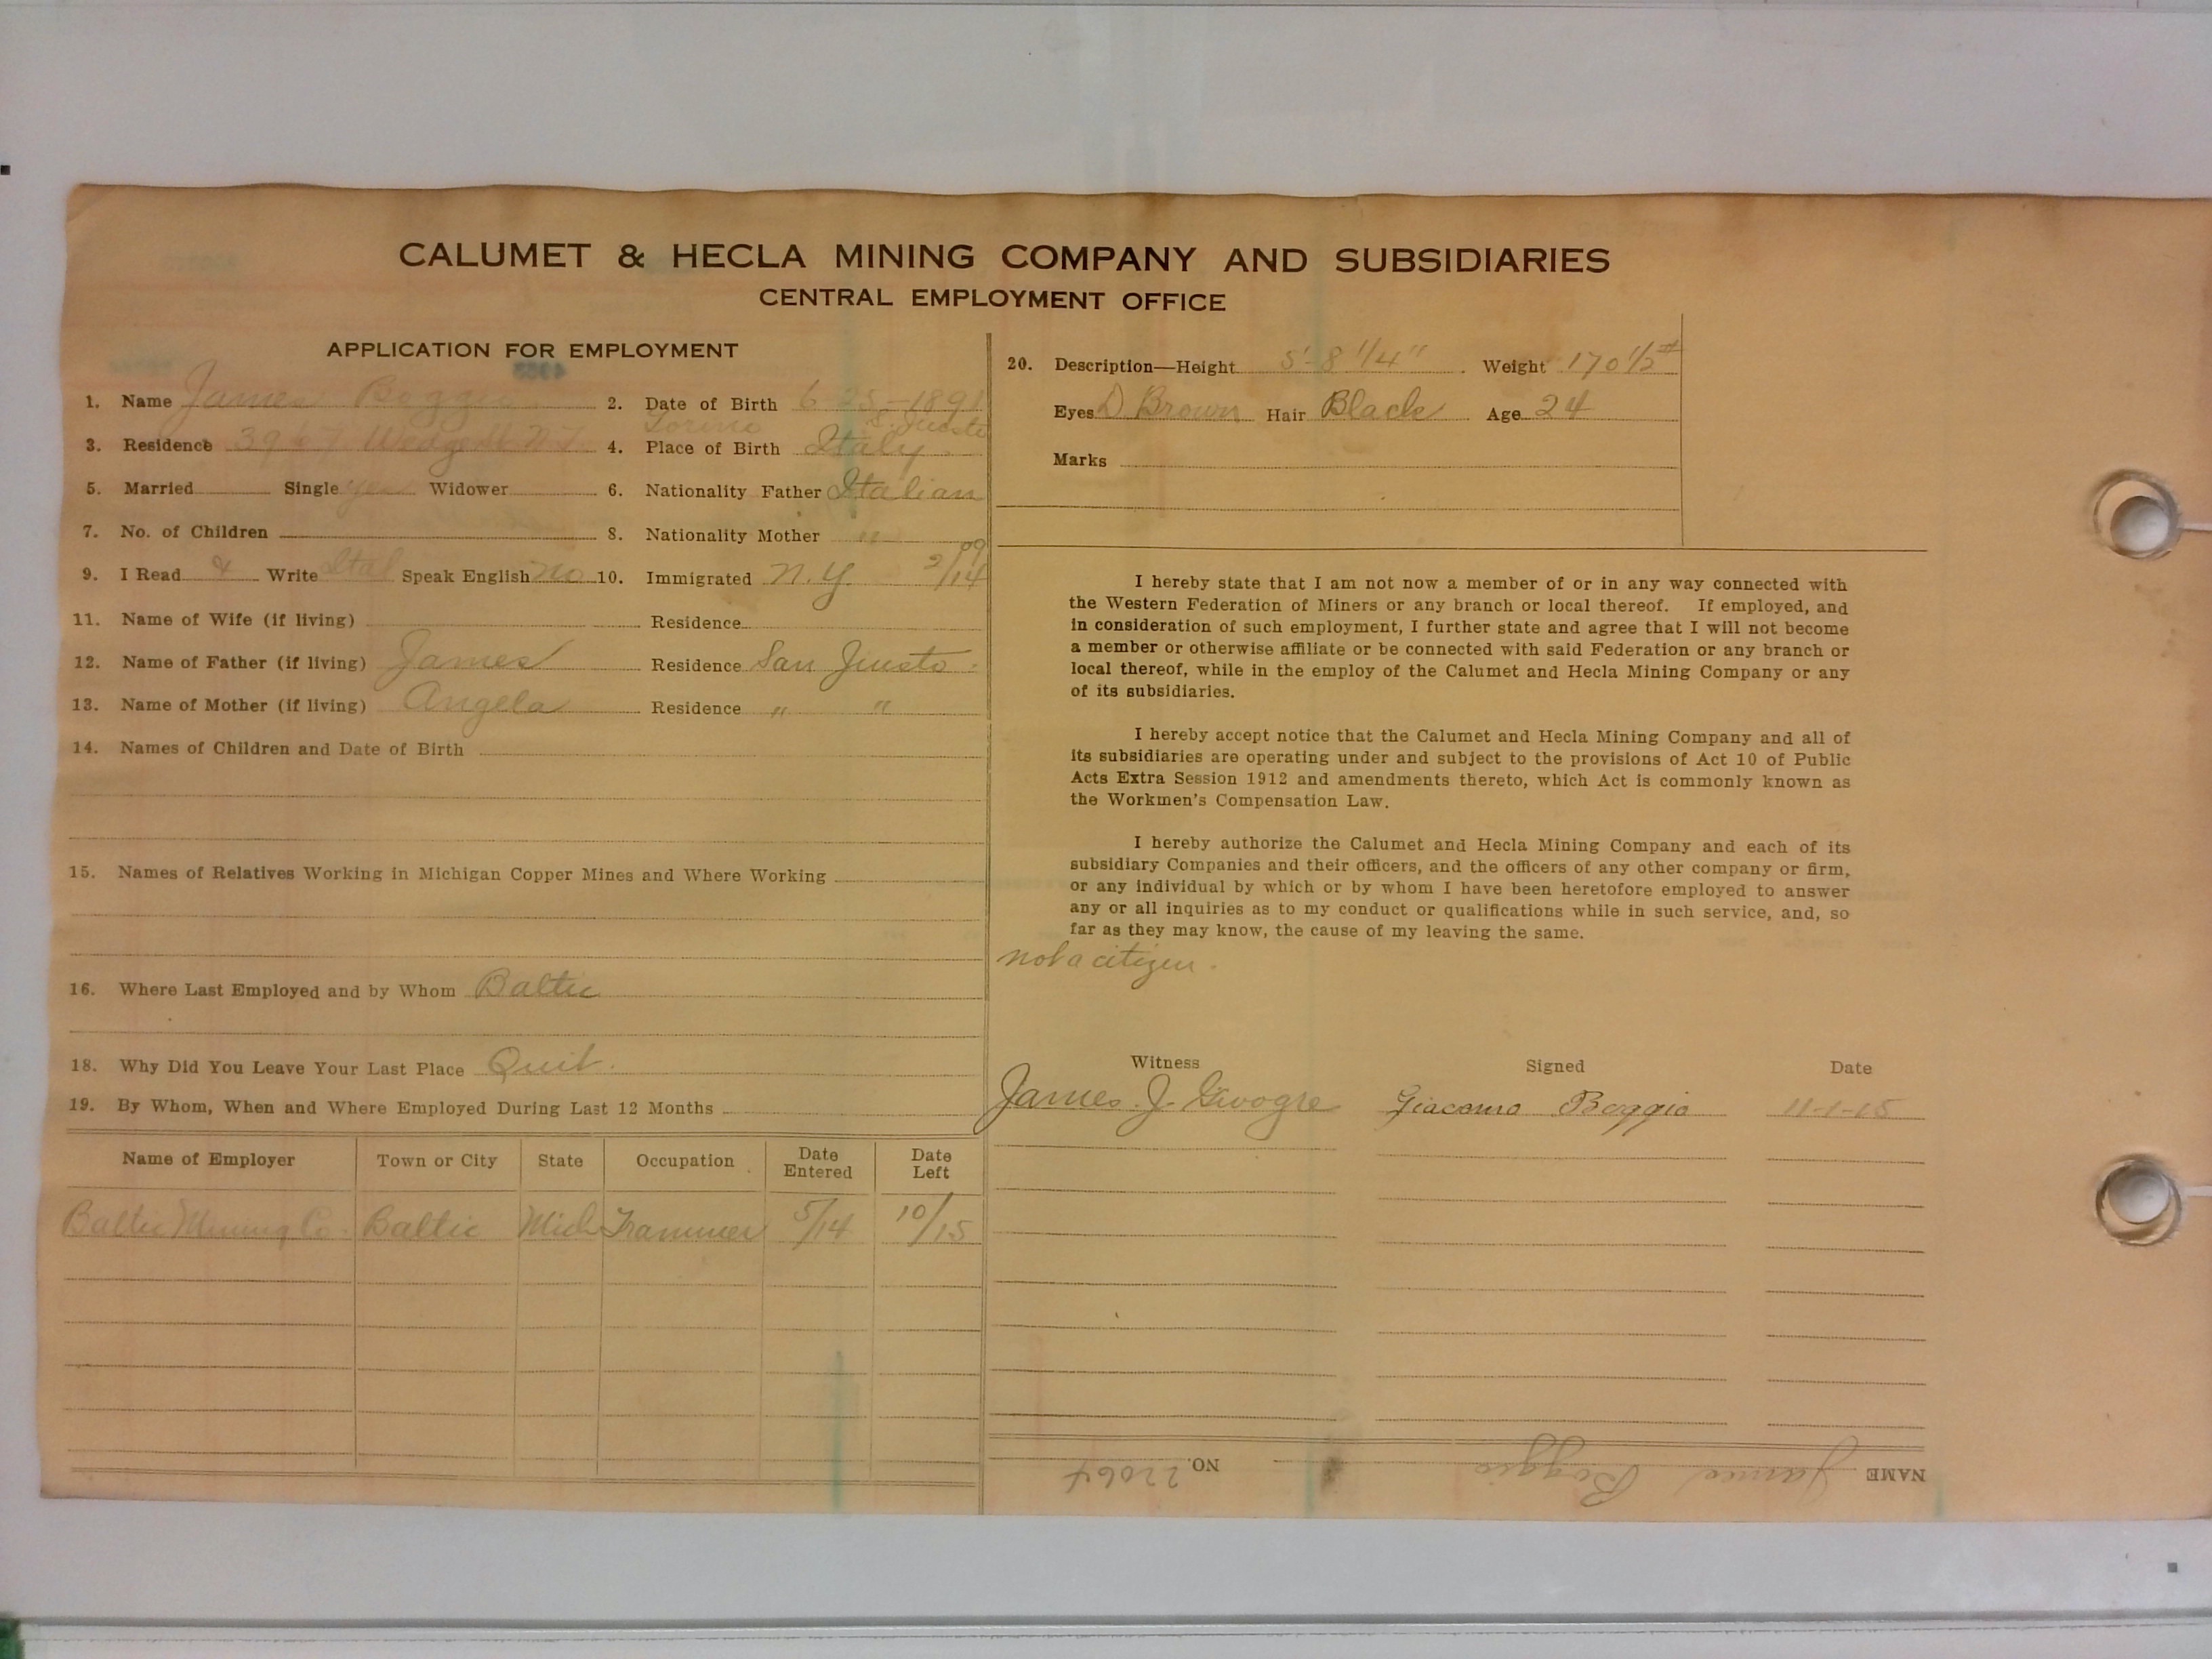 CALUMET & HECLA MINING COMPANY AND SUBSIDIARIES
CENTRAL EMPLOYMENT OFFICE
APPLICATION FOR EMPLOYMENT
1. Name James Boggio 2. Date of Birth 6 25-1891
Torino S. Giusto
3. Residence 4. Place of Birth Italy
5. Married Single yes Widower 6. Nationality Father Italian
7. No. of Children 8. Nationality Mother "
9. I Read & Write Ital Speak English no 10. Immigrated N.Y.
11. Name of Wife (if living) Residence
12. Name of Father (if living) James Residence San Giusto
13. Name of Mother (if living) Angela Residence " "
14. Names of Children and Date of Birth
15. Names of Relatives Working in Michigan Copper Mines and Where Working
16. Where Last Employed and by Whom Baltic
18. Why Did You Leave Your Last Place Quit.
19. By Whom, When and Where Employed During Last 12 Months
Name of Employer Town or City State Occupation Date Entered Date Left
Baltic Mining Co. Baltic Mich Trammer 5/14 10/15
20. Description—Height 5'-8 1/4" Weight 170 1/2 #
Eyes D Brown Hair Black Age 24
Marks
I hereby state that I am not now a member of or in any way connected with
the Western Federation of Miners or any branch or local thereof. If employed, and
in consideration of such employment, I further state and agree that I will not become
a member or otherwise affiliate or be connected with said Federation or any branch or
local thereof, while in the employ of the Calumet and Hecla Mining Company or any
of its subsidiaries.
I hereby accept notice that the Calumet and Hecla Mining Company and all of
its subsidiaries are operating under and subject to the provisions of Act 10 of Public
Acts Extra Session 1912 and amendments thereto, which Act is commonly known as
the Workmen's Compensation Law.
I hereby authorize the Calumet and Hecla Mining Company and each of its
subsidiary Companies and their officers, and the officers of any other company or firm,
or any individual by which or by whom I have been heretofore employed to answer
any or all inquiries as to my conduct or qualifications while in such service, and, so
far as they may know, the cause of my leaving the same.
not a citizen.
Witness Signed Date
James J. Giacomo Boggio 11-1-15
NAME James Boggio NO. 22064